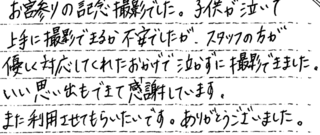 お宮参りの記念撮影でした。子供が泣いて
上手に撮影できるか不安でしたが、スタッフの方が
優しく対応してくれたおかげで泣かずに撮影できました。
いい思い出もできて感謝しています。
また利用させてもらいたいです。ありがとうございました。